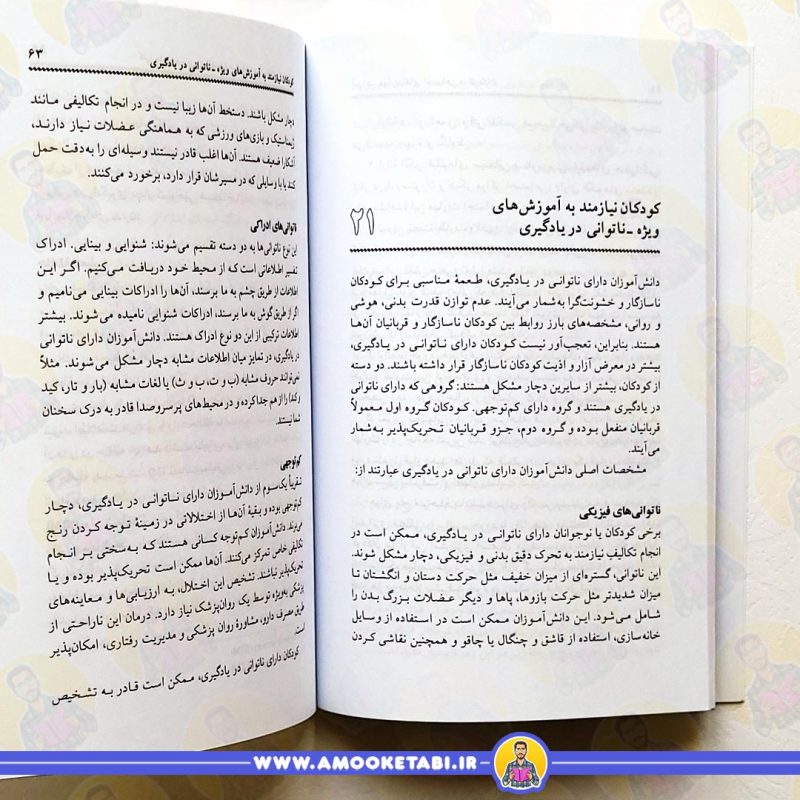 کودکان نیازمند به آموزش‌های
ویژه - ناتوانی در یادگیری
۲۱
دانش‌آموزان دارای ناتوانی در یادگیری، طعمهٔ مناسبی برای کودکان
ناسازگار و خشونت‌گرا به‌شمار می‌آیند. عدم توازن قدرت بدنی، هوشی
و روانی، مشخصه‌های بارز روابط بین کودکان ناسازگار و قربانیان آن‌ها
هستند. بنابراین، تعجب‌آور نیست کودکان دارای ناتوانی در یادگیری،
بیشتر در معرض آزار و اذیت کودکان ناسازگار قرار داشته باشند. دو دسته
از کودکان، بیشتر از سایرین دچار مشکل هستند: گروهی که دارای ناتوانی
در یادگیری هستند و گروه دارای کم‌توجهی. کودکان گروه اول معمولاً
قربانیان منفعل بوده و گروه دوم، جزو قربانیان تحریک‌پذیر به‌شمار
می‌آیند.
مشخصات اصلی دانش‌آموزان دارای ناتوانی در یادگیری عبارتند از:
ناتوانی‌های فیزیکی
برخی کودکان یا نوجوانان دارای ناتوانی در یادگیری، ممکن است در
انجام تکالیف نیازمند به تحرک دقیق بدنی و فیزیکی، دچار مشکل شوند.
این ناتوانی، گستره‌ای از میزان خفیف مثل حرکت دستان و انگشتان تا
میزان شدیدتر مثل حرکت بازوها، پاها و دیگر عضلات بزرگ بدن را
شامل می‌شود. این دانش‌آموزان ممکن است در استفاده از وسایل
خانه‌سازی، استفاده از قاشق و چنگال یا چاقو و همچنین نقاشی کردن
کودکان نیازمند به آموزش‌های ویژه - ناتوانی در یادگیری ۶۳
دچار مشکل باشند. دستخط آن‌ها زیبا نیست و در انجام تکالیفی مانند
ژیمناستیک و بازی‌های ورزشی که به هماهنگی عضلات نیاز دارند،
آشکارا ضعیف هستند. آن‌ها اغلب قادر نیستند وسیله‌ای را به‌دقت حمل
کند یا با وسایلی که در مسیرشان قرار دارد، برخورد می‌کنند.
ناتوانی‌های ادراکی
این نوع ناتوانی‌ها به دو دسته تقسیم می‌شوند: شنوایی و بینایی. ادراک
تفسیر اطلاعاتی است که از محیط خود دریافت می‌کنیم. اگر این
اطلاعات از طریق چشم به ما برسند، آن‌ها را ادراکات بینایی می‌نامیم و
اگر از طریق گوش به ما برسند، ادراکات شنوایی نامیده می‌شوند. بیشتر
اطلاعات ترکیبی از این دو نوع ادراک هستند. دانش‌آموزان دارای ناتوانی
در یادگیری، در تمایز میان اطلاعات مشابه دچار مشکل می‌شوند. مثلاً
نمی‌توانند حروف مشابه (ب و ت، ب و ث) یا لغات مشابه (بار و تار، کید
و کد) را از هم جدا کرده و در محیط‌های پرسروصدا قادر به درک سخنان
شما نیستند.
کم‌توجهی
تقریباً یک‌سوم از دانش‌آموزان دارای ناتوانی در یادگیری، دچار
کم‌توجهی بوده و بقیهٔ آن‌ها از اختلالاتی در زمینهٔ توجه کردن رنج
می‌برند. دانش‌آموزان کم‌توجه کسانی هستند که به‌سختی بر انجام
تکالیفی خاص تمرکز می‌کنند. آن‌ها ممکن است تحریک‌پذیر بوده و یا
تحریک‌پذیر نباشند. تشخیص این اختلال، به ارزیابی‌ها و معاینه‌های
پزشکی به‌ویژه توسط یک روان‌پزشک نیاز دارد. درمان این ناراحتی از
طریق مصرف دارو، مشاورهٔ روان پزشکی و مدیریت رفتاری، امکان‌پذیر
است.
کودکان دارای ناتوانی در یادگیری، ممکن است قادر به تشخیص
WWW.AMOOKETABI.IR